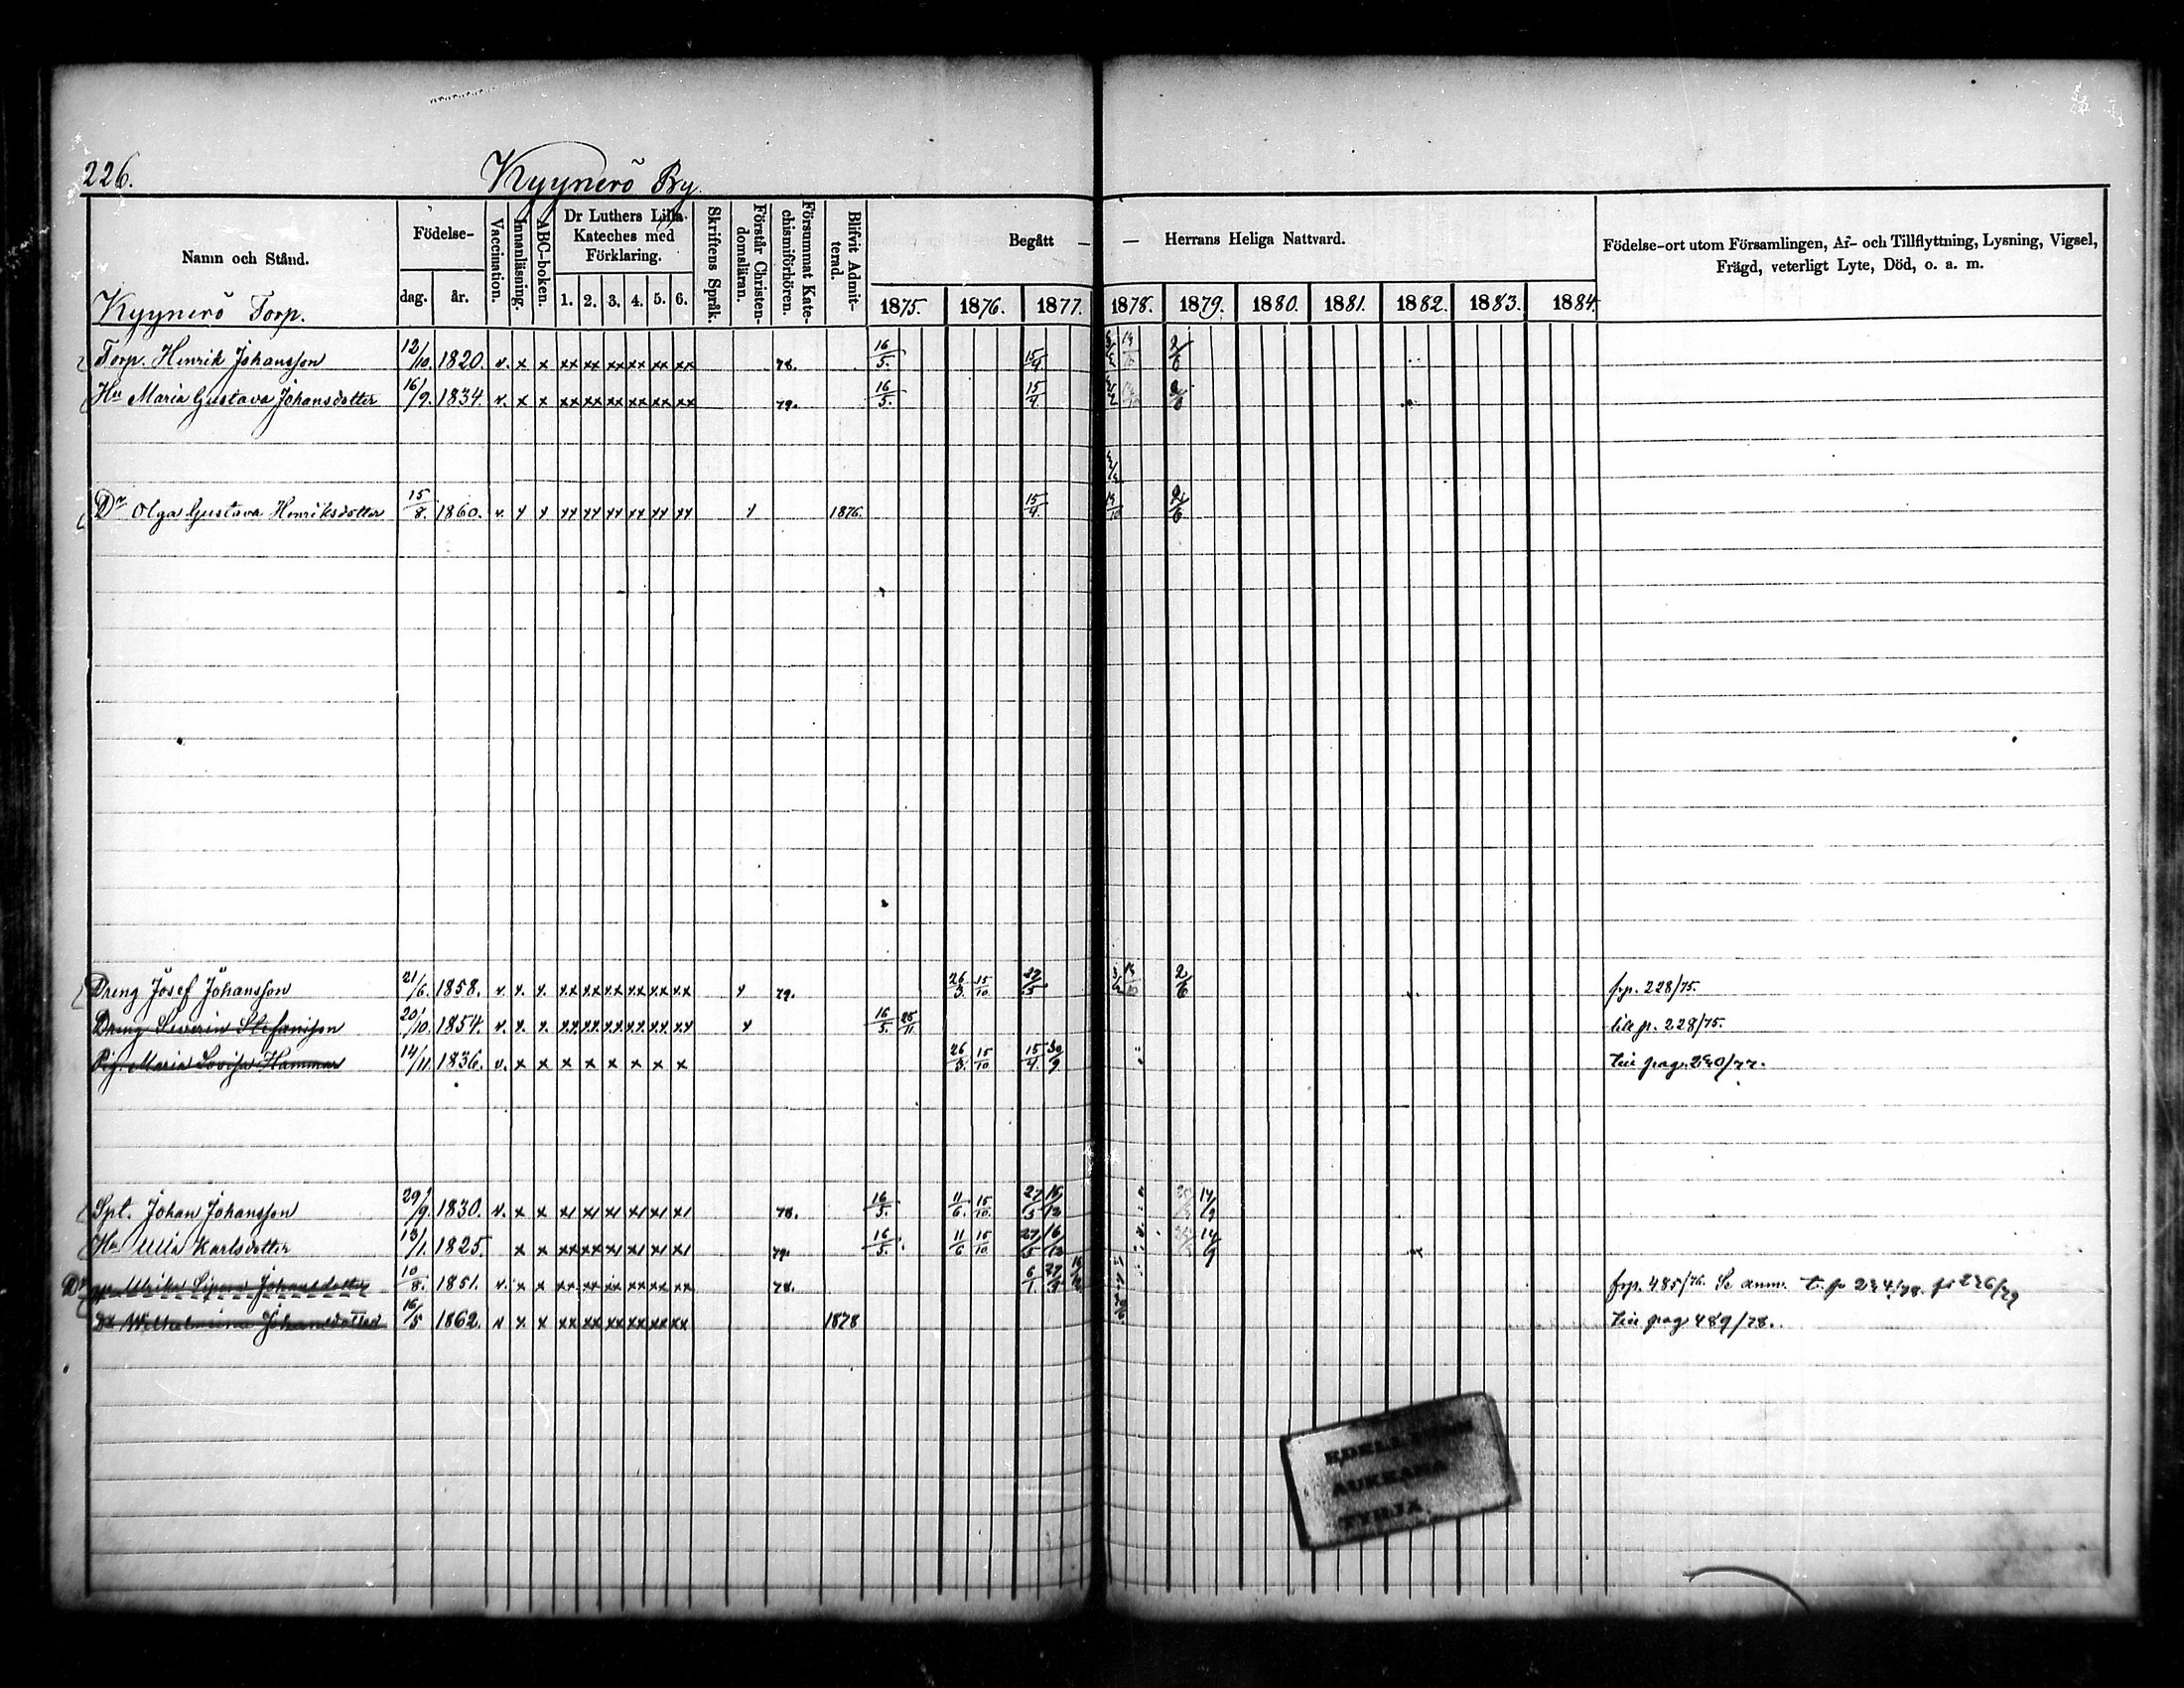 226.
Kyynerö By.
Namn och Stånd.
Födelse-
dag.
år.
Vaccination.
Innanläsning.
ABC-boken.
Dr Luthers Lilla
Kateches med
Förklaring.
1. 2. 3. 4. 5. 6.
Skriftens Språk.
Förstår Christen-
domsläran.
Försummat Kate-
chismiförhören.
Blifvit Admit-
terad.
Begått — — Herrans Heliga Nattvard.
1875. 1876. 1877. 1878. 1879. 1880. 1881. 1882. 1883. 1884.
Födelse-ort utom Församlingen, Af- och Tillflyttning, Lysning, Vigsel,
Frägd, veterligt Lyte, Död, o. a. m.
Kyynerö Torp.
Torp. Henrik Johansson 12/10. 1820. v. x x xx xx xx xx xx xx 78. 16/5. 15/4 2/6
Hu Maria Gustava Johansdotter 16/9. 1834. v. x x xx xx xx xx xx xx 79. 16/5. 15/4 2/6
Dr Olga Gustava Henriksdotter 15/8. 1860. v. x x xx xx xx xx xx xx x 1876. 15/4. 2/6
Dreng Josef Johansson 21/6. 1858. v. x. x. xx xx xx xx xx xx x 79. 26/3. 15/10 27/5 2/6 frp. 228/75.
Dreng Severin Stefansson 20/10. 1854. v. x. x. xx xx xx xx xx xx x 16/5. 25/11 till p. 228/75.
Pig. Maria Lovisa Hammar 14/11. 1836. v. x x x x x x x x 26/3. 15/10 15/4. 30/9 till pag. 240/77.
Spt. Johan Johansson 29/9. 1830. v. x x x x x x x x 78. 16/5. 11/6. 15/10. 27/5 16/12 14/9
Hu Ulla Karlsdotter 13/1. 1825. x x xx xx x x x x 79. 16/5. 11/6 15/10 27/5 16/12 14/9
Dr Ulrika Johansdotter 10/8. 1851. v. x x xx xx xx xx xx xx 78. 6/1 frp. 485/76. Se anm. t. p 234/78. fr 236/79
Dr Wilhelmina Johansdotter 16/5 1862. v x x xx xx xx xx xx xx 1878 till pag 489/78.
EDELLINEN
AUKEAMA
TYHJÄ